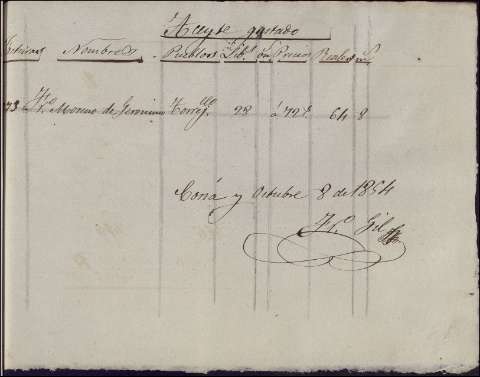 Aceyte gastado
Nombres Pueblos Lib.s on Precio Reales m.s
73 Fco. Moreno de Geronimo Torrejll.o 28 á 72 64 8
Coria y Octubre 8 de 1854
Fco. Gil